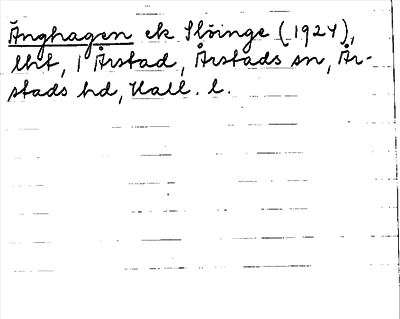 Änghagen ek Slöinge (1924),
lht, 1 Årstad, Årstads sn, År-
stads hd, Hall. l.